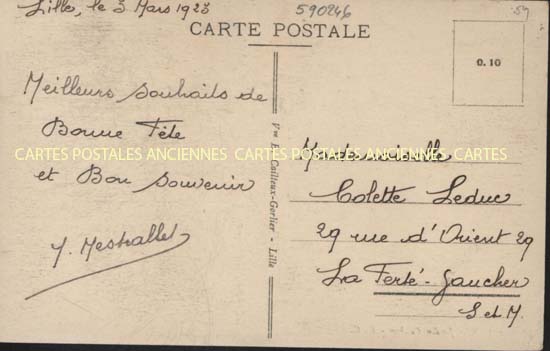 Lille, le 3 Mars 1923
590246
CARTE POSTALE
0.10
Meilleurs souhaits de
Bonne Fête
et Bon Souvenir
Y. Mestrallet
Vve E. Cailleux-Gorlier - Lille
Mademoiselle
Colette Leduc
29 rue d'Orient 29
La Ferté-Gaucher
S et M.
CARTES POSTALES ANCIENNES CARTES POSTALES ANCIENNES CARTES